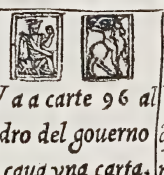 V a a carte 96 al
dro del gouerno
caua vna carta,